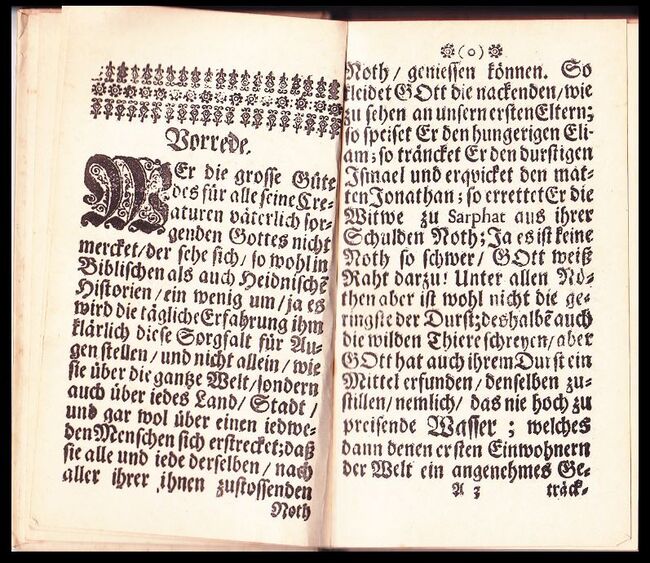 Vorrede.
WEr die grosse Güte
des für alle seine Cre-
aturen väterlich sor-
genden Gottes nicht
mercket/der sehe sich/ so wohl in
Biblischen als auch Heidnischē
Historien/ein wenig um/ja es
wird die tägliche Erfahrung ihm
klärlich diese Sorgfalt für Au-
gen stellen/und nicht allein/wie
sie über die gantze Welt/sondern
auch über iedes Land/ Stadt/
und gar wol über einen iedwe-
den Menschen sich erstrecket;daß
sie alle und iede derselben/ nach
aller ihrer ihnen zustossenden
Noth
(o)
Noth/ geniessen können. So
kleidet GOtt die nackenden/wie
zu sehen an unsern ersten Eltern;
so speiset Er den hungerigen Eli-
am; so träncket Er den durstigen
Ismael und erqvicket den mat-
ten Jonathan; so errettet Er die
Witwe zu Sarphat aus ihrer
Schulden Noth; Ja es ist keine
Noth so schwer/ GOtt weiß
Raht darzu! Unter allen Nö-
then aber ist wohl nicht die ge-
ringste der Durst;deshalbē auch
die wilden Thiere schreyen/aber
GOtt hat auch ihrem Durst ein
Mittel erfunden/denselben zu-
stillen/nemlich/ das nie hoch zu
preisende Wasser ; welches
dann denen ersten Einwohnern
der Welt ein angenehmes Ge-
A 3 träck-